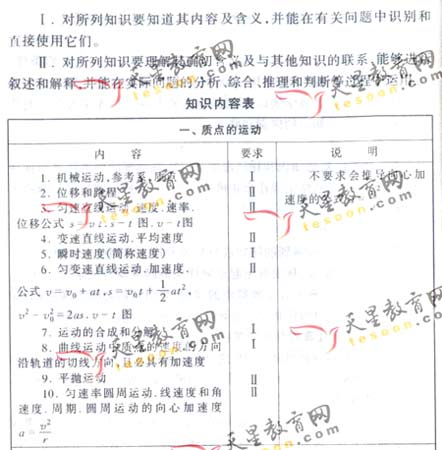 Ⅰ. 对所列知识要知道其内容及含义,并能在有关问题中识别和
直接使用它们。
Ⅱ. 对所列知识要理解其确切含义及与其他知识的联系,能够进行
叙述和解释,并能在实际问题的分析、综合、推理和判断等过程中运用。
知识内容表
一、质点的运动
内 容 要求 说 明
1. 机械运动,参考系,质点 Ⅰ 不要求会推导向心加
2. 位移和路程 Ⅱ 速度的
3. 匀速直线运动.速度.速率. Ⅱ
位移公式 s=vt.s-t 图.v-t 图
4. 变速直线运动.平均速度 Ⅱ
5. 瞬时速度(简称速度) Ⅰ
6. 匀变速直线运动.加速度. Ⅱ
公式 v=v₀+at,s=v₀t+½at²,
v²-v₀²=2as.v-t 图
7. 运动的合成和分解 Ⅰ
8. 曲线运动中质点的速度的方向 Ⅰ
沿轨道的切线方向,且必具有加速度
9. 平抛运动 Ⅱ
10. 匀速率圆周运动.线速度和角 Ⅱ
速度.周期.圆周运动的向心加速度
a=v²/r
天星教育网
tesoon.com
天星教育网
tesoon.com
天星教育网
tesoon.com
天星教育网
tesoon.com
天星教育网
tesoon.com
天星教育网
tesoon.com
天星教育网